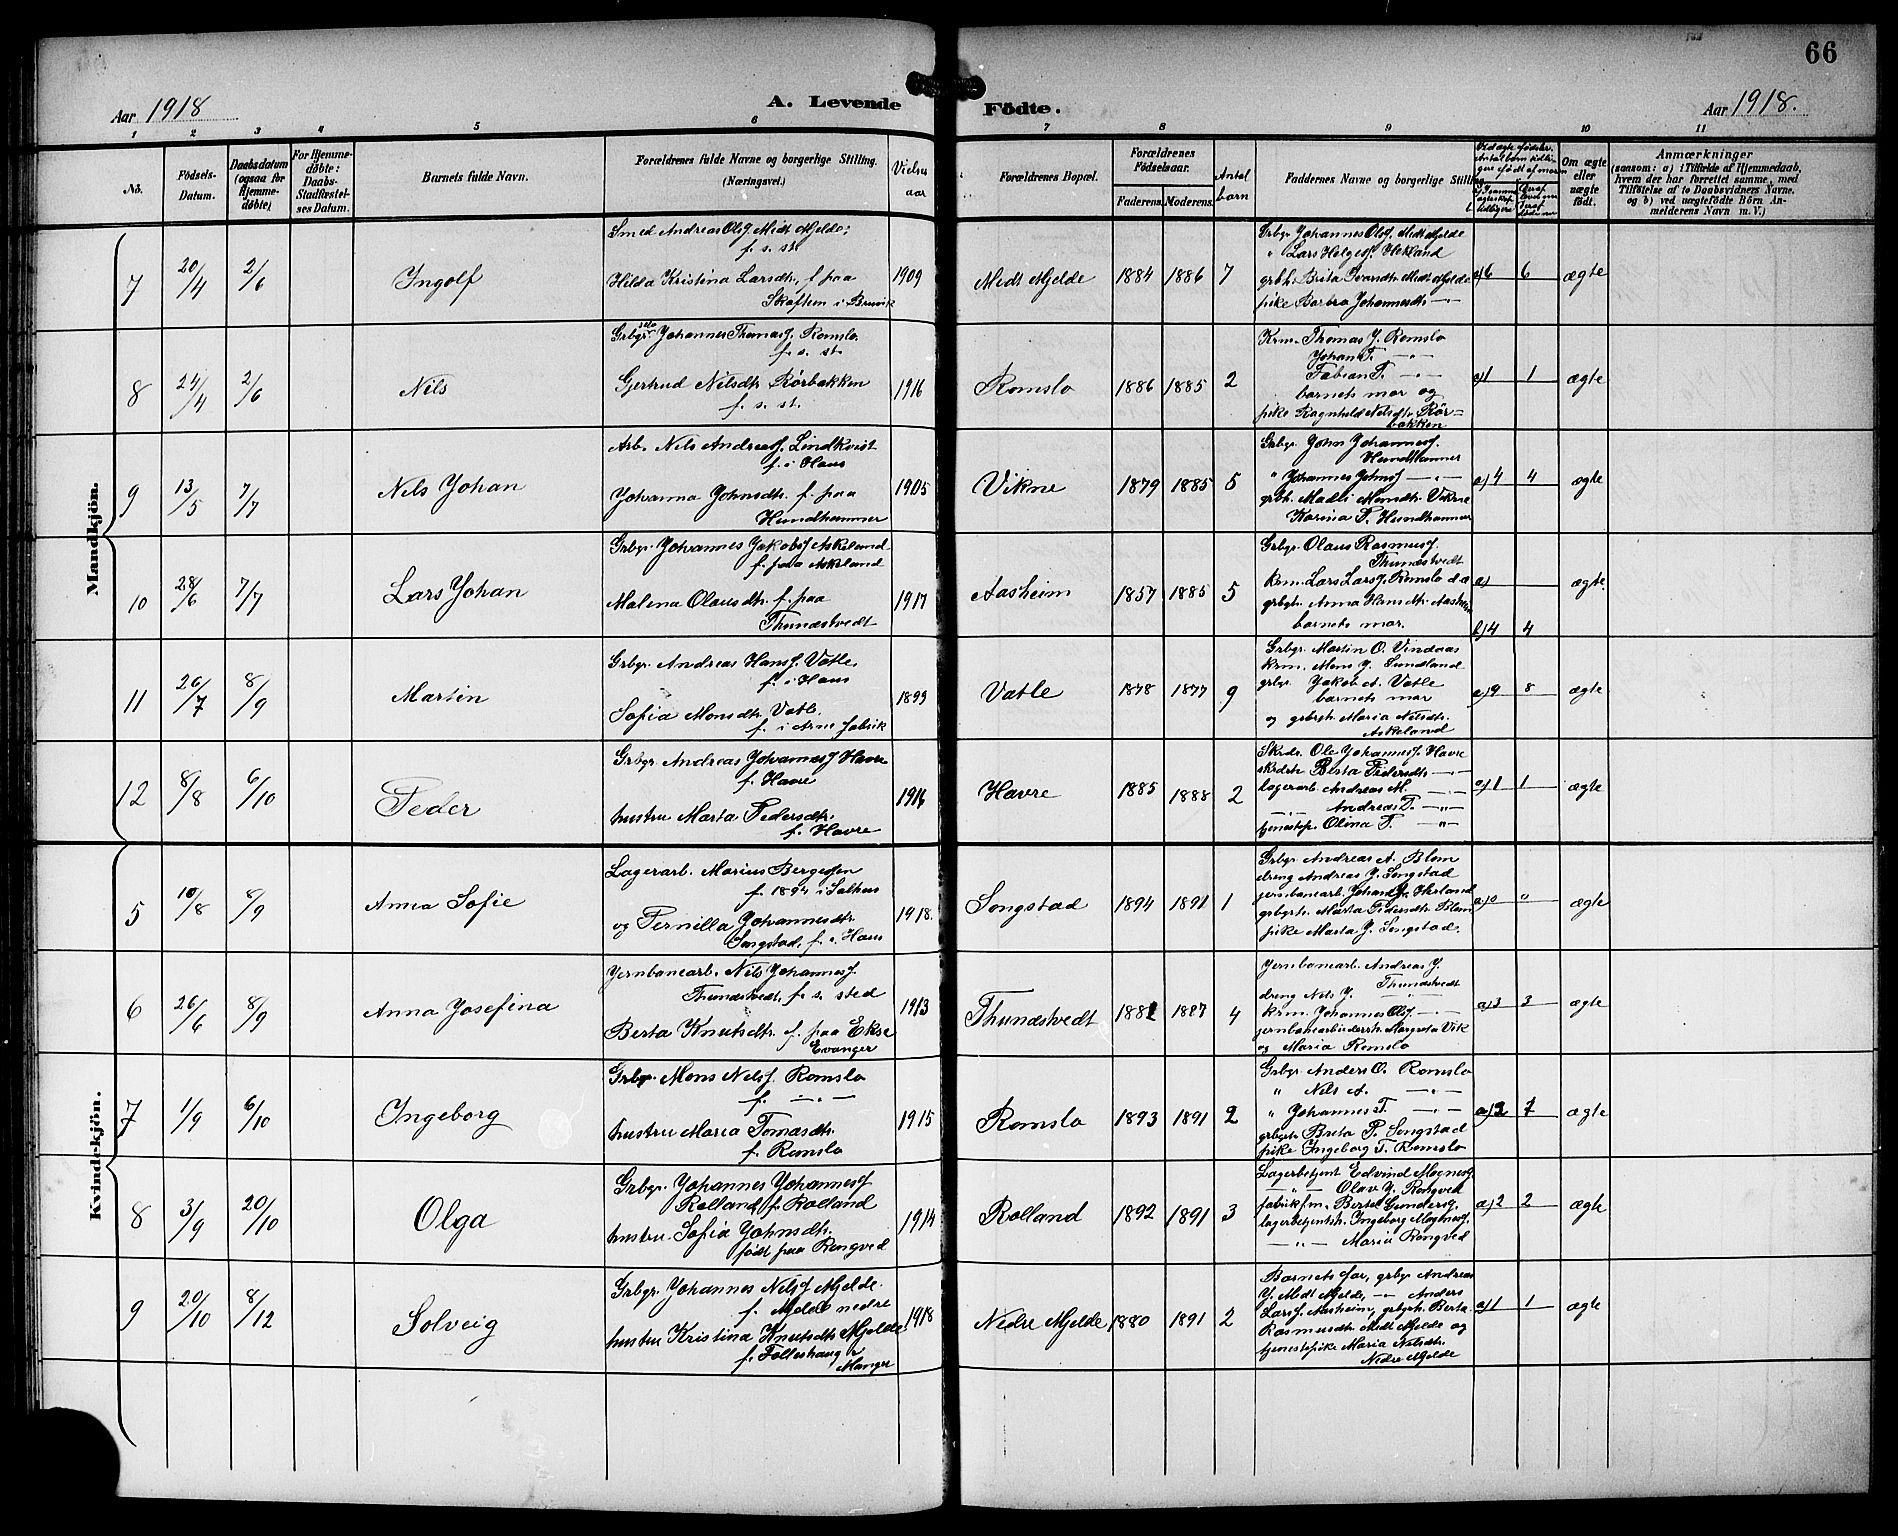 66
Aar 1918
A. Levende Födte.
Aar 1918.
1 2 3 4 5 6 7 8 9 10 11
No.
Födsels-Datum.
Daabsdatum (ogsaa for Hjemme-döbte)
For Hjemme-döbte: Daabs-Stadfæstel-ses Datum.
Barnets fulde Navn.
Forældrenes fulde Navne og borgerlige Stilling. (Næringsvei.)
Vielses aar
Forældrenes Bopæl.
Forældrenes Födselsaar.
Faderens. Moderens.
Antal barn
Faddernes Navne og borgerlige Stilling
Om ægte eller uægte födt.
Anmærkninger
(saasom: a) i Tilfælde af Hjemmedaab, hvem der har forrettet samme, med Tilföielse af to Daabsvidners Navne, og b) ved uægtefödte Börn An-melderens Navn m. V.)
Mandkjön.
7 20/4 2/6 Ingolf
Smed Andreas Olsf. Midt Mjelde;
f. s. st.
Hilda Kristina Larsdtr. f. paa
Skaftun i Bruvik
1909 Midt Mjelde 1884 1886 7
Grbgr. Johannes Olsf. Midt Mjelde
" Lars Helgesf. Hekland
grbk. Brita Ivarsdtr. Midt Mjelde
pike Barbra Johannesdtr. —"—
a) 6 6 ægte
8 24/4 2/6 Nils
Grbgr. Johannes Thomasf. Romslo
f. s. st.
Gjertrud Nilsdtr. Rörbakken
f. s. st.
1916 Romslo 1886 1885 2
Krm. Thomas J. Romslo
Johan T. —"—
Fabian T. —"—
barnets mor og
pike Ragnhild Nilsdtr. Rör-
bakken
a) 1 1 ægte
9 13/5 7/7 Nils Johan
Arb. Nils Andreasf. Lindkvist
f. i Haus
Johanna Johnsdtr. f. paa
Hundhammer
1905 Vikne 1879 1885 5
Grbgr. John Johannesf.
Hundhammer
" Johannes Johnsf —"—
grbk. Madli Monsdtr. Vikne
Karina J. Hundhammer
a) 4 4 ægte
10 28/6 7/7 Lars Johan
Grbgr. Johannes Jakobsf Askeland
f. paa Askeland
Malena Olausdtr. f. paa
Thunæstvedt
1917 Aasheim 1857 1885 5
Grbgr. Olaus Rasmusf.
Thunæstvedt
krm. Lars Larsf. Romslo d.æ
grbgk. Anna Hansdtr. Aasheim
barnets mor.
a)
b) 4 4 ægte.
11 26/7 8/9 Martin
Grbgr. Andreas Hansf. Vatle
f. i Haus
Sofia Monsdtr. Vatle
f. i Arne fabrik
1899 Vatle 1878 1877 9
Grbgr. Martin O. Vindaas
krm. Mons J. Sundland
grbgr. Jakob A. Vatle
barnets mor
og grbrk. Maria Nilsdtr.
Askeland
a) 9 8 ægte
12 8/8 6/10 Peder
Grbgr. Andreas Johannesf Havre
f. Havre
hustru Marta Pedersdtr.
f. Havre
1916 Havre 1885 1888 2
Skrdr. Ole Johannesf. Havre
skrdrk Berta Pedersdtr —"—
lagerarb. Andreas M. —"—
—"— Andreas P. —"—
tjenestep. Olina P. —"—
a) 1 1 ægte
Kvindekjön.
5 10/8 8/9 Anna Sofie
Lagerarb. Marius Bergesen
f. 1894 i Salhus
og Pernilla Johannesdtr.
Songstad, f. i Haus
1918. Songstad 1894 1891 1
Grbgr. Andreas A. Blom
dreng Andreas J. Songstad
jernbanearb. Johan J. Herland
grbgrk. Marta Pedersdtr. Blom
pike Marta J. Songstad.
a) 0 " ægte
6 26/6 8/9 Anna Josefina
Jernbanearb. Nils Johannesf
Thunæstvedt, f. s. sted
Berta Knutsdtr. f. paa Ekse
Evanger
1913 Thunæstvedt 1881 1887 4
Jernbanearb. Andreas J.
Thunæstvedt
dreng Nils J. —"—
krm. Johannes Olsf. —"—
jernbanearbeidersk. Margreta Vik
og Maria Romslo
a) 3 3 ægte
7 1/9 6/10 Ingeborg
Grbgr. Mons Nilsf. Romslo
f. —"—
hustru Maria Tomasdtr.
f. Romslo
1915 Romslo 1893 1891 2
Grbgr. Anders O. Romslo
" Nils A. —"—
" Johannes T. —"—
grbgrk Brita P. Songstad
pike Ingeborg T. Romslo
a) 2 7 ægte
8 3/9 20/10 Olga
Grbgr. Johannes Johannesf
Rolland, f. Rolland
hustru. Sofia Johnsdtr.
født paa Rongved
1914 Rolland 1892 1891 3
Lagerbetjent Edvind Magnesf
—"— Olav J. Rongved
fabrikfm. Bertel Gundersf.
lagerbetjentsk. Ingeborg Magnesf.
—"— Maria Rongved
a) 2 2 ægte
9 20/10 8/12 Solveig
Grbgr. Johannes Nilsf Mjelde.
f. Mjelde nedre
hustru Kristina Knutsdtr Mjelde
f. Folleshaug
Manger
1918 Nedre Mjelde 1880 1891 2
Barnets far, grbgr Andreas
J. Midt Mjelde, —"— Anders
Larsf. Aasheim, grbgrk. Berta
Rasmusdtr Midt Mjelde og
tjenestepike Maria Nilsdtr.
Nedre Mjelde
a) 1 1 ægte